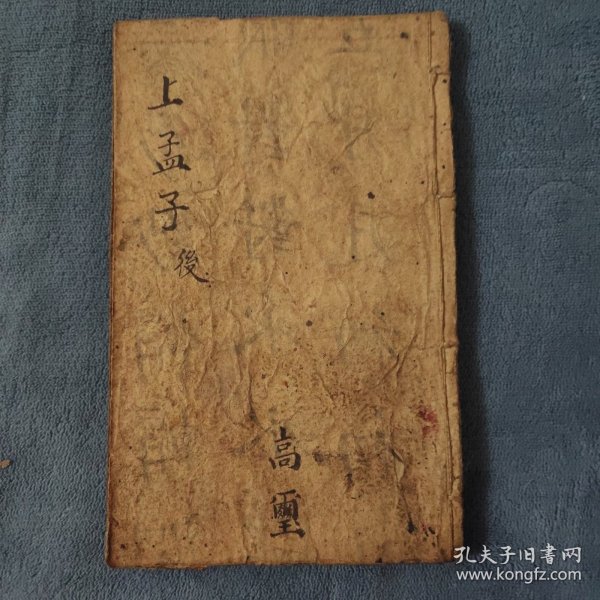 上孟子
後
高璽
孔夫子旧书网
www.kongfz.com